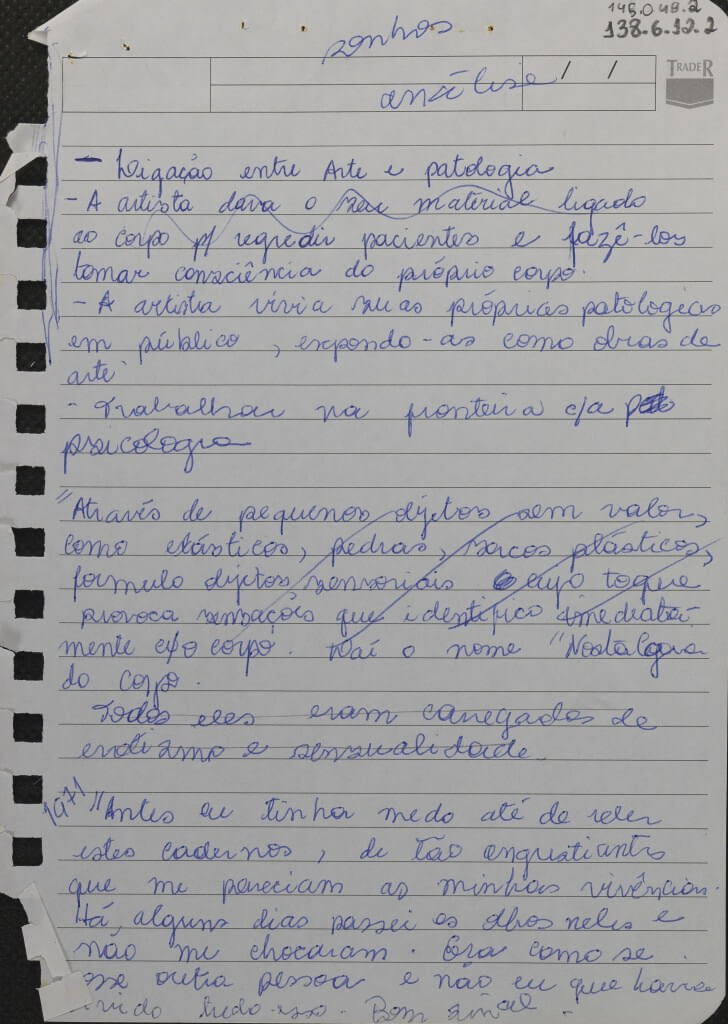 146.048.2
138.6.12.2
sonhos
análise
/ /
TRADER
- Ligação entre Arte e patologia
- A artista dava o seu material ligado
ao corpo p/ regredir pacientes e fazê-los
tomar consciência do próprio corpo.
- A artista vivia suas próprias patologias
em público, expondo-as como obras de
arte
- Trabalhar na fronteira c/a
psicologia
"Através de pequenos objetos sem valor,
como elásticos, pedras, sacos plásticos,
formulo objetos sensoriais cujo toque
provoca sensações que identifico imediata-
mente c/o corpo. Daí o nome "Nostalgia
do corpo.
Todos eles eram carregados de
erotismo e sensualidade.
1971 "Antes eu tinha medo até de reler
estes cadernos, de tão angustiantes
que me pareciam as minhas vivências.
Há, alguns dias passei os olhos neles e
não me chocaram. Era como se
sse outra pessoa e não eu que havia
vivido tudo isso. Bom sinal.